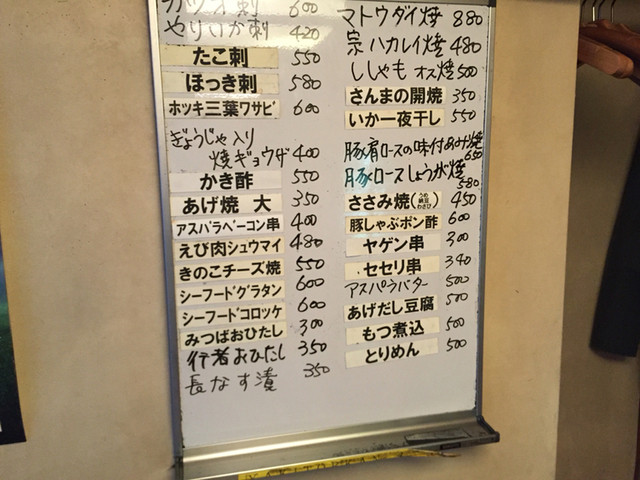 刺 600
やりいか刺 420
たこ刺 550
ほっき刺 580
ホッキ三葉ワサビ 600
ぎょうじゃ入り
焼ギョウザ 400
かき酢 550
あげ焼 大 350
アスパラベーコン串 400
えび肉シュウマイ 480
きのこチーズ焼 550
シーフードグラタン 600
シーフードコロッケ 600
みつばおひたし 300
行者おひたし 350
長なす漬 350
マトウダイ焼 880
宗ハカレイ焼 480
ししゃも オス焼 500
さんまの開焼 350
いか一夜干し 550
豚肩ロースの味付あみ焼
650
豚ロースしょうが焼
580
ささみ焼(うめ 納豆 わさび) 450
豚しゃぶポン酢 600
ヤゲン串 300
セセリ串 340
アスパラバター 500
あげだし豆腐 500
もつ煮込 500
とりめん 500